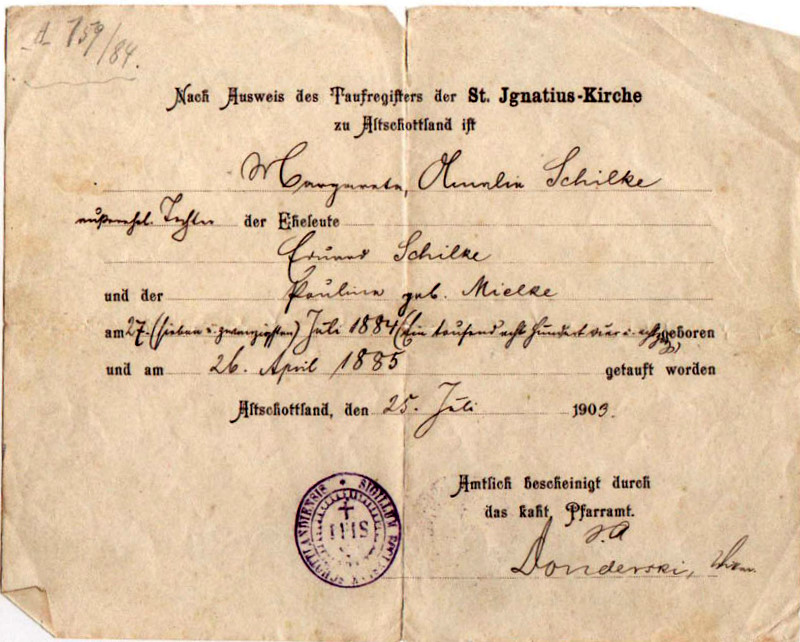 A 159/84.
Nach Ausweis des Taufregisters der St. Jgnatius-Kirche
zu Altschottland ist
Margareta, Amalie Schilke
außerehel. Tochter der Eheleute
Eduard Schilke
und der Pauline geb. Mielke
am 27. (sieben u. zwanzigsten) Juli 1884 (Ein tausend acht hundert vier u. achtzig) geboren
und am 26. April 1885 getauft worden
Altschottland, den 25. Juli 1903.
Amtlich bescheinigt durch
das kath. Pfarramt.
Donderski,
SIGILLUM SCHOTTLANDIENSIS
IHS